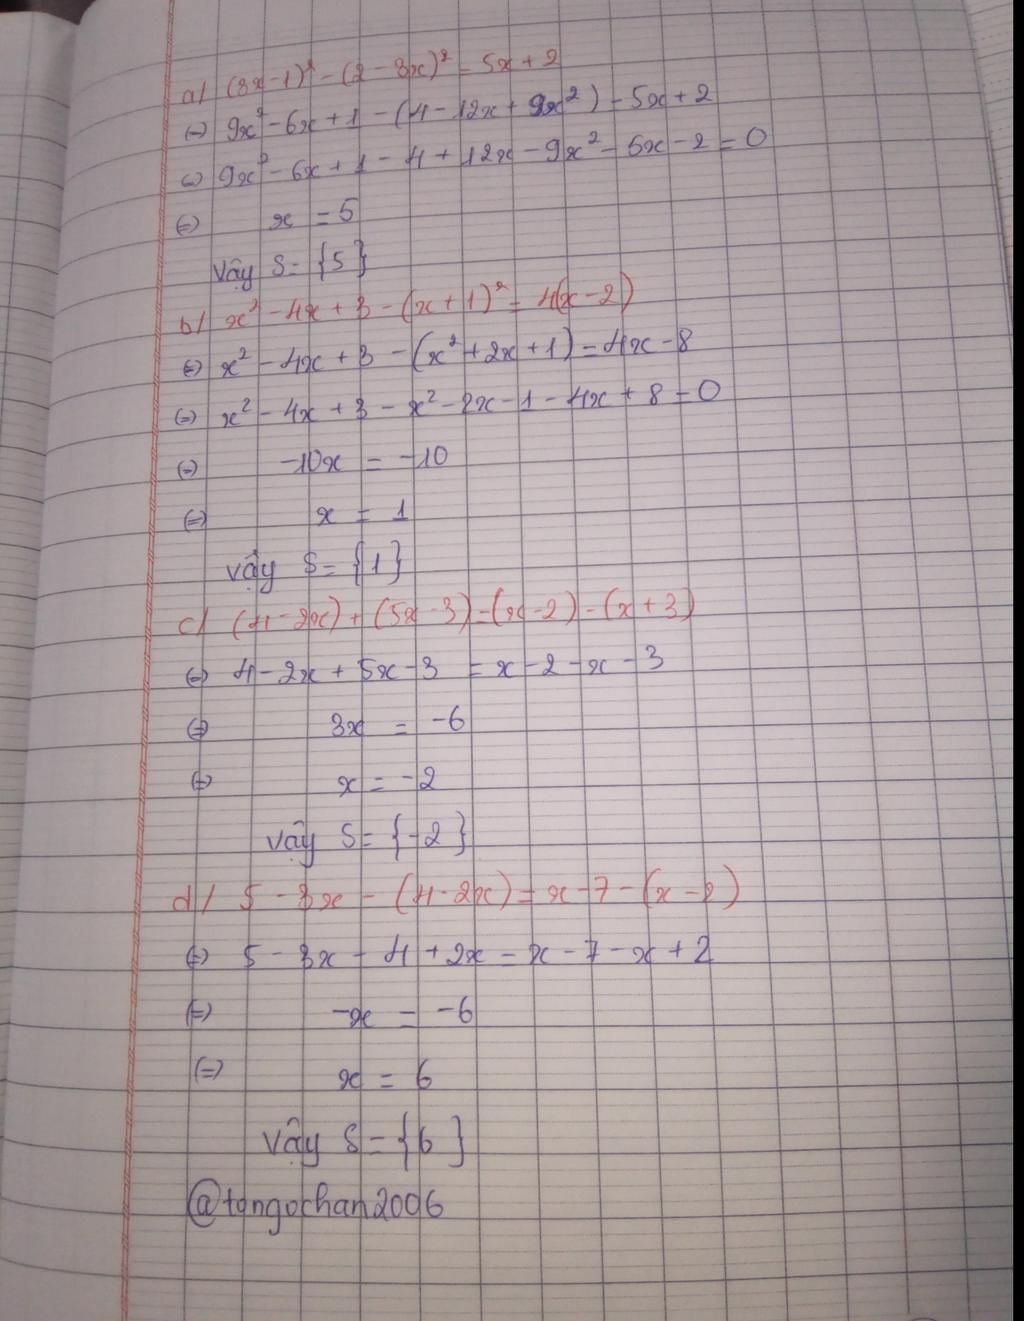 a) (3x-1)² - (2-3x)² = 5x+2
(=) 9x²-6x+1-(4-12x+9x²) = 5x+2
(=) 9x²-6x+1-4+12x-9x²-5x-2=0
(=) x = 5
Vậy S={5}
b) x²-4x+3-(x+1)²=4(x-2)
(=) x²-4x+3-(x²+2x+1)=4x-8
(=) x²-4x+3-x²-2x-1-4x+8=0
(=) -10x = -10
(=) x = 1
Vậy S={1}
c) (4-2x)+(5x-3)=(x-2)-(x+3)
(=) 4-2x+5x-3 = x-2-x-3
(=) 3x = -6
(=) x = -2
Vậy S={-2}
d) 5-3x-(4-2x)=x-7-(x-2)
(=) 5-3x-4+2x=x-7-x+2
(=) -x = -6
(=) x = 6
Vậy S={6}
@tongochan2006